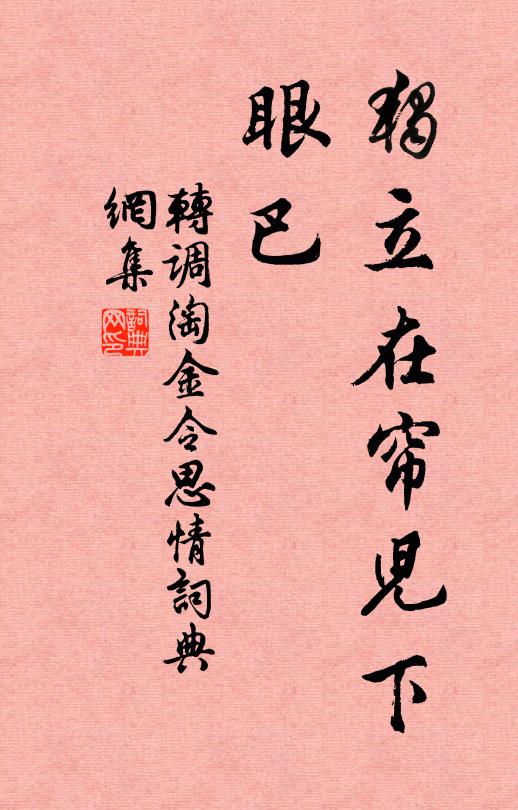 獨立在帘兒下
眼巴
轉調淘金令思情詞典
網集
詞典
网印